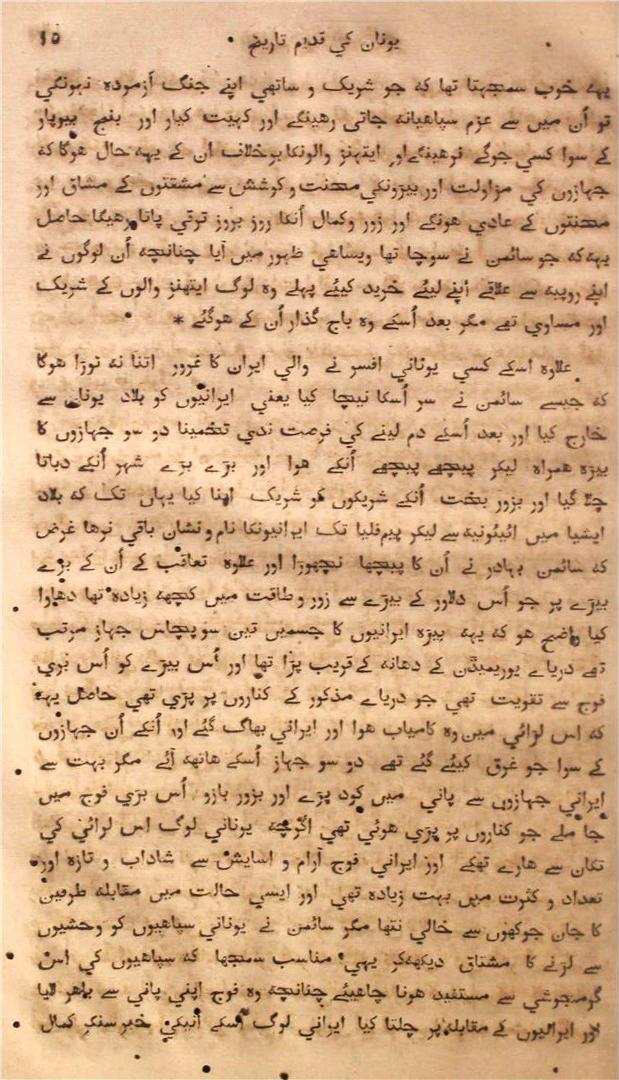 یونان کي قدیم تاریخ ۱۵
یہہ خوب سمجہتا تھا کہ جو شریک و ساتھي اپنے جنگ آزمودہ نہونگي
تو اُن میں سے عزم سپاھیانہ جاتی رھینگے اور کہیت کیار اور بنج بیوپار
کے سوا کسي جوگے نرھینگے اور ایتھنز والونکا برخلاف ان کے یہہ حال ھوگا کہ
جہازوں کي مزاولت اور بیڑونکي محنت و کوشش سے مشقتوں کے مشاق اور
محنتوں کے عادي ھونگے اور زور و کمال اُنکا روز بروز ترقي پاتا رھیگا حاصل
یہہ کہ جو سائمن نے سوچا تھا ویساھي ظہور میں آیا چنانچہ اُن لوگوں نے
اپنے روپیہ سے علاقے اپنے لیئے خرید کیئے پہلے وہ لوگ ایتھنز والوں کے شریک
اور مساوي تھے مگر بعد اُسکے وہ باج گذار اُن کے ھوگئے *
علاوہ اسکے کسي یوناني افسر نے والي ایران کا غرور اتنا نہ توڑا ھوگا
کہ جیسے سائمن نے سر اُسکا نیچا کیا یعني ایرانیوں کو بلاد یونان سے
خارج کیا اور بعد اُسکے دم لینے کي فرصت ندي تخمینا دو سو جہازوں کا
بیڑہ ھمراہ لیکر پیچھے پیچھے اُنکے ھوا اور بڑے بڑے شہر اُنکے دباتا
چلا گیا اور بزور بخت اُنکے شریکوں کو شریک اپنا کیا یہاں تک کہ بلاد
ایشیا میں ائیئونیہ سے لیکر پیمفلیا تک ایرانیونکا نام و نشان باقي نرھا غرض
کہ سائمن بہادر نے اُن کا پیچھا نچھوڑا اور علاوہ تعاقب کے اُن کے بڑے
بیڑے پر جو اُس دلاور کے بیڑے سے زور و طاقت میں کچھہ زیادہ تھا دھاوا
کیا واضح ھو کہ یہہ بیڑہ ایرانیوں کا جسمیں تین سو پچاس جہاز مرتب
تھے دریاے یوریمیڈن کے دھانہ کے قریب پڑا تھا اور اُس بیڑے کو اُس بري
فوج سے تقویت تھي جو دریاے مذکور کے کناروں پر پڑي تھي حاصل یہہ
کہ اس لڑائي میں وہ کامیاب ھوا اور ایراني بھاگ گئے اور اُنکے اُن جہازوں
کے سوا جو غرق کیئے گئے تھے دو سو جہاز اُسکے ھاتھہ آئے مگر بہت سے
ایراني جہازوں سے پاني میں کود پڑے اور بزور بازو اُس بڑي فوج میں
جا ملے جو کناروں پر پڑي ھوئي تھي اگرچہ یوناني لوگ اس لڑائي کي
تکان سے ھارے تھکے اور ایراني فوج آرام و اسایش سے شاداب و تازہ اور
تعداد و کثرت میں بہت زیادہ تھي اور ایسي حالت میں مقابلہ طرفین
کا جان جوکھوں سے خالي نتھا مگر سائمن نے یوناني سپاھیوں کو وحشیوں
سے لڑنے کا مشتاق دیکھکر یہي مناسب سمجھا کہ سپاھیوں کي اس
گرمجوشي سے مستفید ھونا چاھیئے چنانچہ وہ فوج اپني پاني سے باھر لایا
اور ایرانیوں کے مقابلہ پر چلتا کیا ایراني لوگ اُسکے آنیکي خبر سنکر کمال